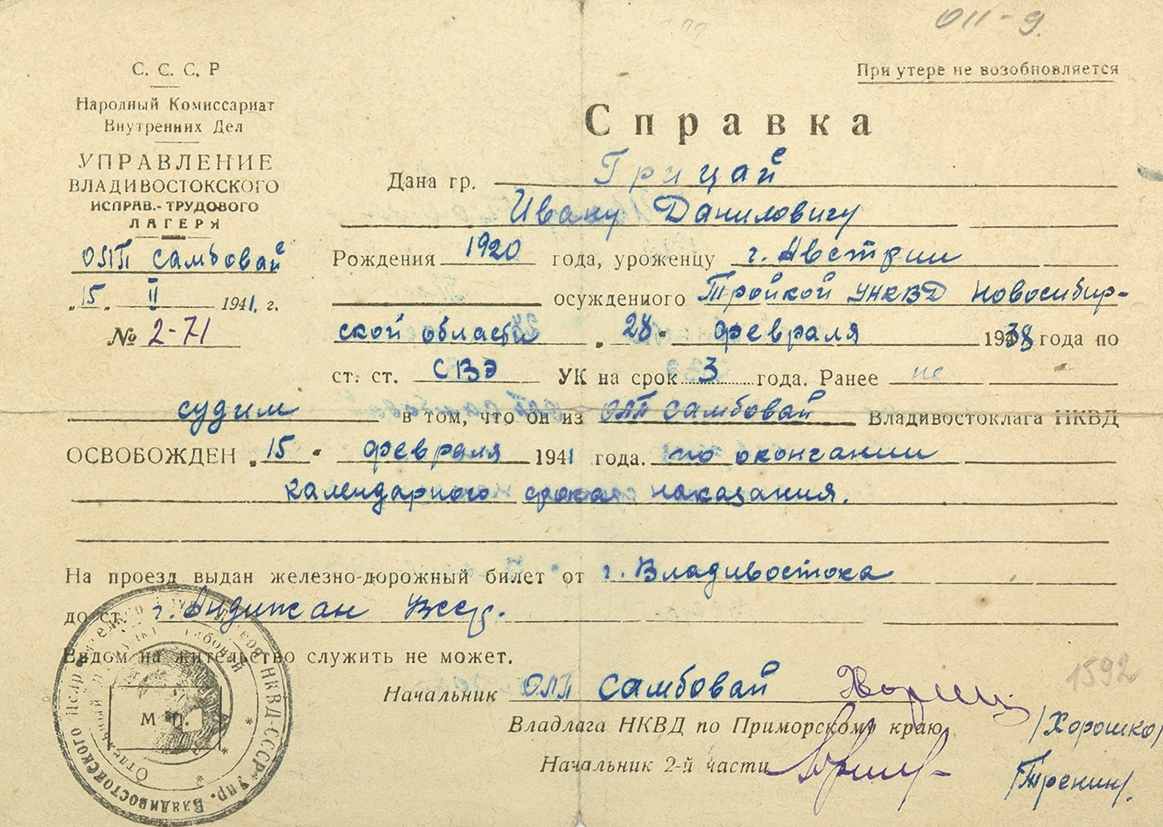 ОЛП-9.
При утере не возобновляется
С. С. С. Р
Народный Комиссариат
Внутренних Дел
УПРАВЛЕНИЕ
ВЛАДИВОСТОКСКОГО
ИСПРАВ.-ТРУДОВОГО
ЛАГЕРЯ
ОЛП Самбовай
„15. II 1941. г.
№ 2-71
Справка
Дана гр. Грицай
Ивану Даниловичу
Рождения 1920 года, уроженцу г. Австрии
осужденного Тройкой УНКВД Новосибир-
ской области „28" февраля 1938 года по
ст. ст. СВЭ УК на срок 3 года. Ранее не
судим в том, что он из ОЛП Самбовай Владивостоклага НКВД
ОСВОБОЖДЕН „15" февраля 1941 года. по окончании
календарного срока наказания.
На проезд выдан железно-дорожный билет от г. Владивостока
до ст. г. Андижан Усср.
Видом на жительство служить не может.
Начальник ОЛП Самбовай
Владлага НКВД по Приморскому краю
/Хорошко/
Начальник 2-й части
/Тренин/.
1592
М. П.